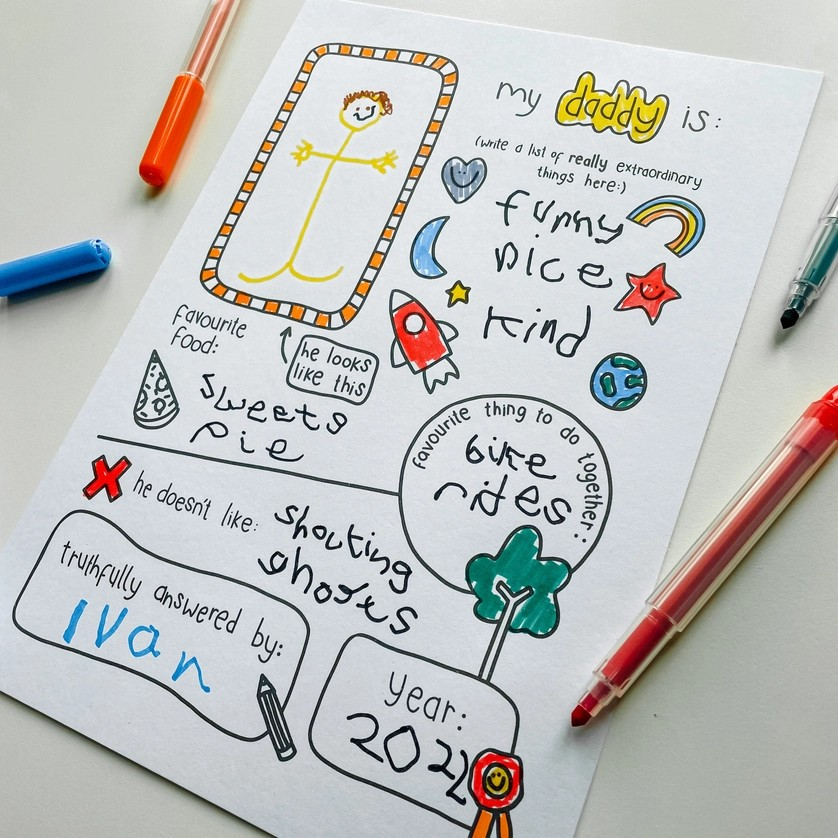 my daddy is:
(write a list of really extraordinary
things here:)
funny
nice
kind
favourite
food:
he looks
like this
sweets
pie
favourite thing to do together:
bike
rides
he doesn't like:
shouting
ghosts
truthfully answered by:
Ivan
year:
2022